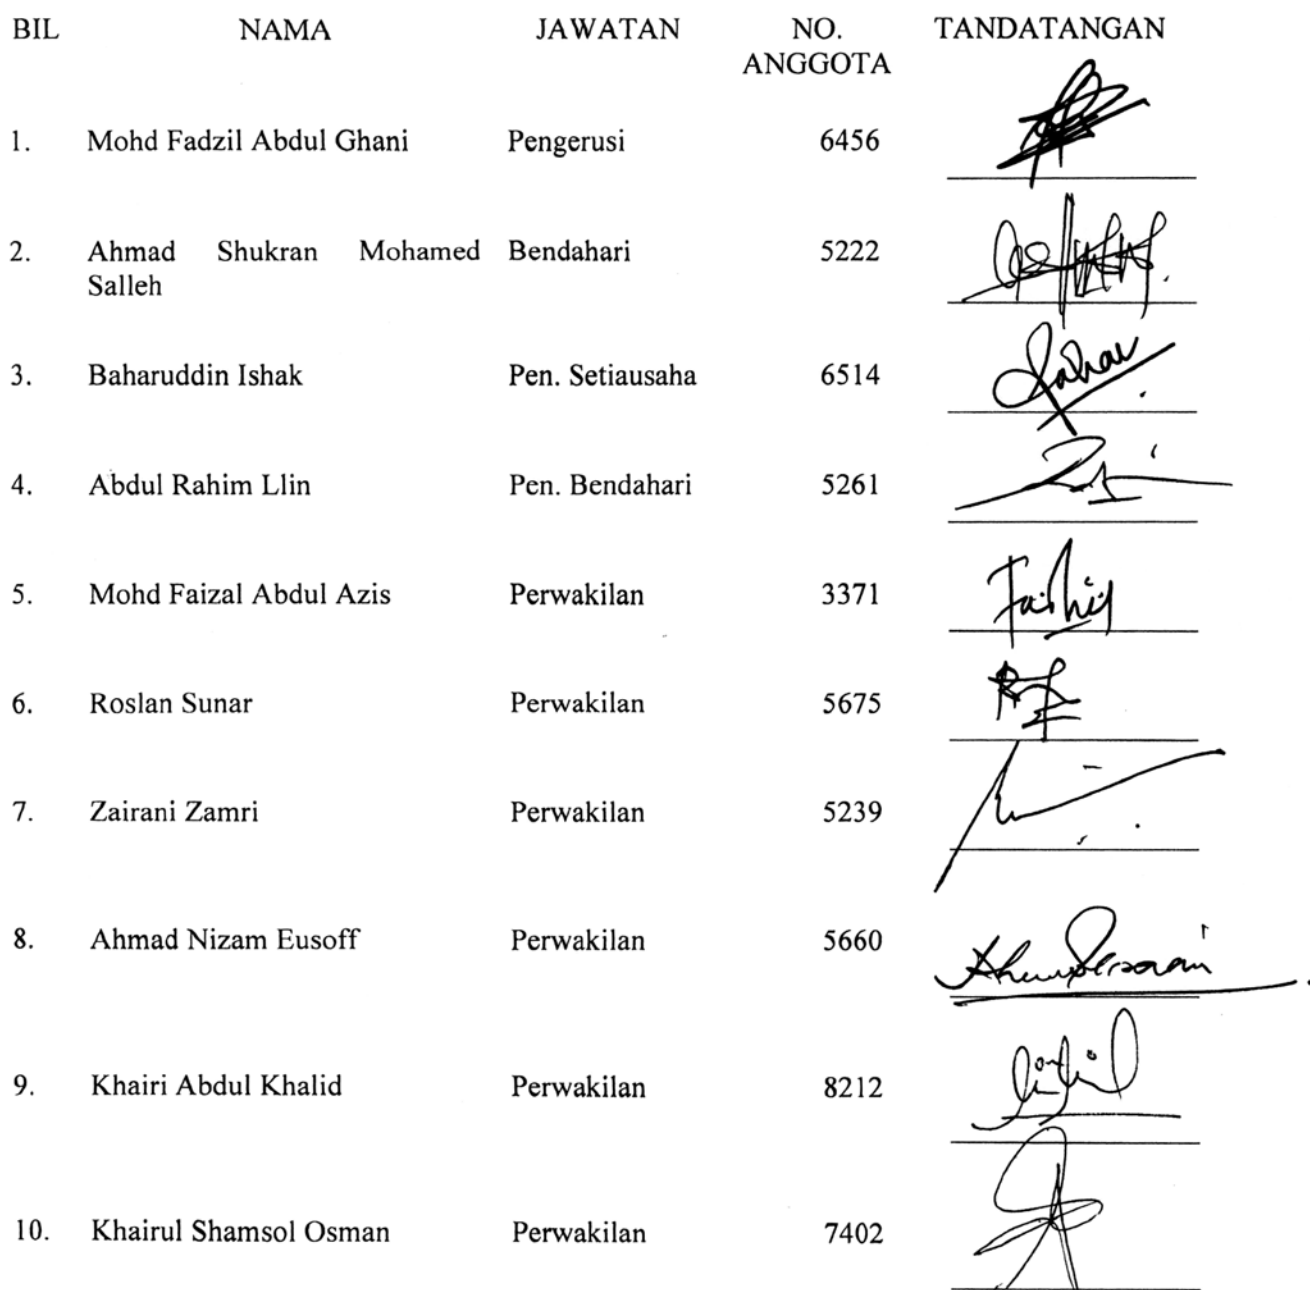 BIL NAMA JAWATAN NO. TANDATANGAN
ANGGOTA
1. Mohd Fadzil Abdul Ghani Pengerusi 6456
2. Ahmad Shukran Mohamed Bendahari 5222
Salleh
3. Baharuddin Ishak Pen. Setiausaha 6514
4. Abdul Rahim Llin Pen. Bendahari 5261
5. Mohd Faizal Abdul Azis Perwakilan 3371
6. Roslan Sunar Perwakilan 5675
7. Zairani Zamri Perwakilan 5239
8. Ahmad Nizam Eusoff Perwakilan 5660
9. Khairi Abdul Khalid Perwakilan 8212
10. Khairul Shamsol Osman Perwakilan 7402